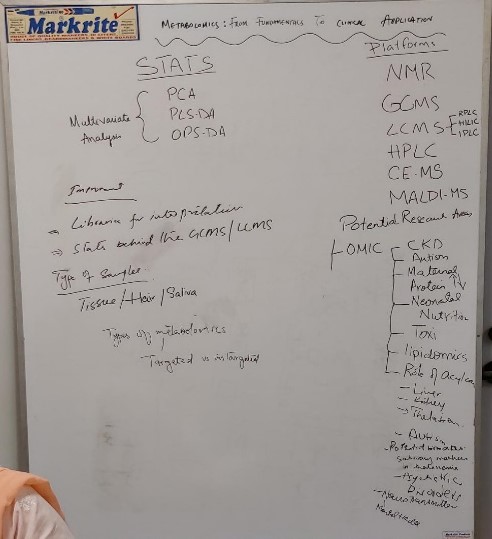 Markrite
METABOLOMICS: FROM FUNDAMENTALS TO CLINICAL APPLICATION
STATS
Multivariate
Analysis
PCA
PLS-DA
OPS-DA
Important
⇒ Libraries for interpretation
⇒ Stats behind the GCMS/LCMS
Type of Samples
Tissue/Hair/Saliva
Types of metabolomics
Targeted vs untargeted
Platforms
NMR
GCMS
LCMS
RPLC
HILIC
IPLC
HPLC
CE-MS
MALDI-MS
Potential Research Areas
OMIC
CKD
- Autism
- Maternal
Protein ↑↓
- Neonatal
Nutrition
- Toxi
- lipidomics
- Role of
- Liver
- Kidney
- Autism
- Potential
salivary markers
in
- Psychotic
Disorders